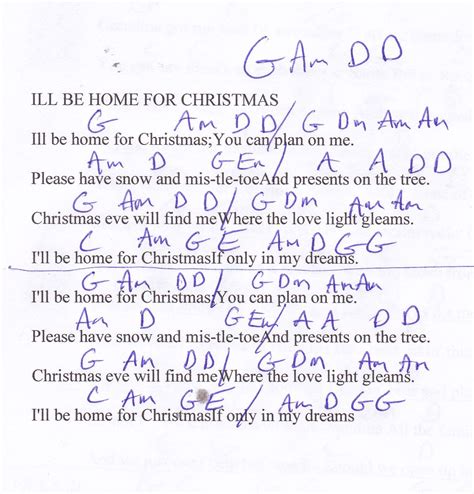 G Am D D
ILL BE HOME FOR CHRISTMAS
G Am D D / G Dm Am Am
Ill be home for Christmas;You can plan on me.
Am D G Em / A A D D
Please have snow and mis-tle-toeAnd presents on the tree.
G Am D D / G Dm Am Am
Christmas eve will find meWhere the love light gleams.
C Am G E / Am D G G
I'll be home for ChristmasIf only in my dreams.
G Am D D / G Dm Am Am
I'll be home for Christmas;You can plan on me.
Am D G Em / A A D D
Please have snow and mis-tle-toeAnd presents on the tree.
G Am D D / G Dm Am Am
Christmas eve will find meWhere the love light gleams.
C Am G E / Am D G G
I'll be home for ChristmasIf only in my dreams